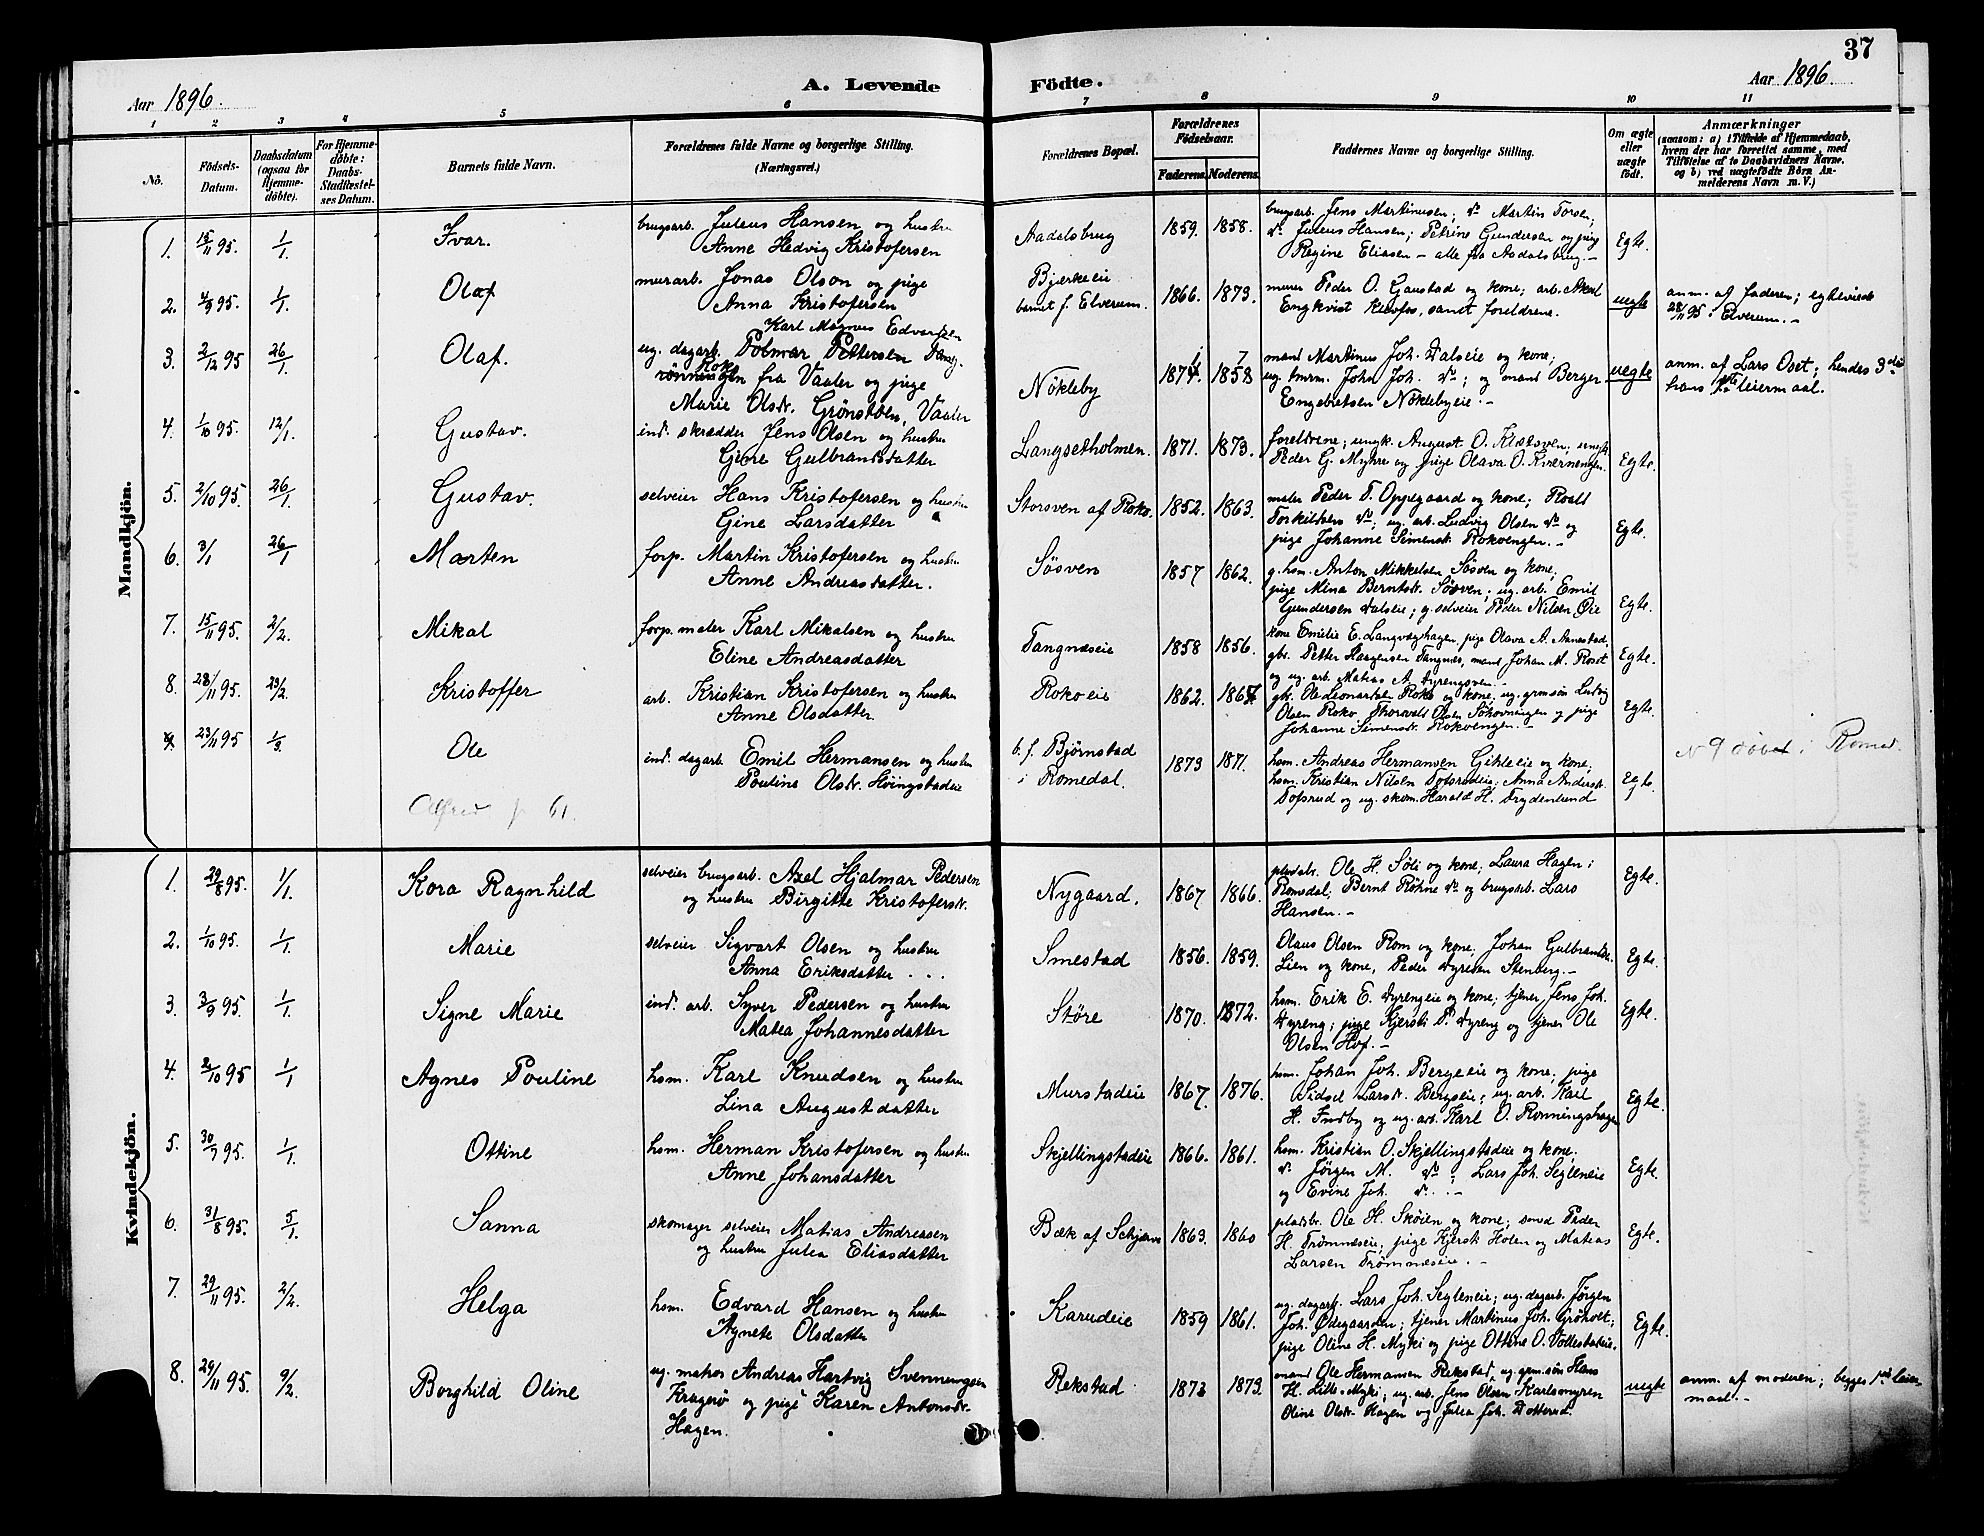 37
Aar 1896.
A. Levende
Födte.
Aar 1896.
1 2 3 4 5 6 7 8 9 10 11
No.
Födsels-Datum.
Daabsdatum (ogsaa for Hjemmedöbte).
For Hjemmedöbte: Daabs-Stadfæstelses Datum.
Barnets fulde Navn.
Forældrenes fulde Navne og borgerlige Stilling.
(Næringsvei.)
Forældrenes Bopæl.
Forældrenes Födselsaar.
Faderens. Moderens.
Faddernes Navne og borgerlige Stilling.
Om ægte eller uægte födt.
Anmærkninger
(saasom: a) i Tilfælde af Hjemmedaab,
hvem der har forrettet samme, med
Tilföielse af to Daabsvidners Navne.
og b) ved uægtefödte Börn An-
melderens Navn m. V.)
Mandkjön.
1. 15/11 95. 1/1. Ivar. brugsarb. Julius Hansen og hustru
Anne Hedvig Kristofersen
Aadalsbrug 1859. 1858.
brugsarb. Jens Martinusen; do Martin Torsen;
do Julius Hansen; Petrine Gundersen og pige
Regine Eliasen – alle fra Aadalsbrug. –
Egte.
2. 4/9 95. 1/1. Olaf murarb. Jonas Olson og pige
Anna Kristofersen
Bjerkeeie
barnet f. Elverum. 1866. 1873.
murer Peder O. Gaustad og kone; arb. Aksel
Engkvist, samt foreldrene.
uegte
anm. af faderen; egteviede
28/11 95 i Elverum. –
3. 2/12 95 26/1. Olaf. Karl Magnus Edvardsen
ug. dagarb. Polmar Pettersen
fra Vaaler og pige
Marie Olsdr. Grönstöen, Vaaler
Nökleby 1874. 1858
mand Martinus Joh. Dalseie og kone;
ug. tmrm. John Joh. do; og mand Berger
Engebretsen Nöklebyeie. –
uegte
anm. af Lars Oset; hendes 3die
hans leiermaal.
4. 1/10 95. 12/1. Gustav. ind. skrædder Jens Olsen og hustru
Gjine Gulbrandsdatter
Langsetholmen. 1871. 1873.
foreldrene; ungk. August O.
Peder G. Myhre og pige Olava O. Kvernengen.
Egte.
5. 2/10 95. 26/1 Gustav. selveier Hans Kristofersen og hustru
Gine Larsdatter
Storsven af Roko. 1852. 1863.
maler Peder T. Oppegaard og kone; Roald
Torkildsen do; ug. arb. Ludvig Olsen do og
pige Johanne Simensdr. Rokoengen. –
Egte.
6. 3/1 26/1 Marten forp. Martin Kristofersen og hustru
Anne Andreasdatter.
Sösven 1857 1862.
g. hsm. Anton Mikkelsen Sösven og kone;
pige Mina Berntsdr. Sösven; ug. arb. Emil
Gundersen Dalseie; g. selveier Peder Nilsen Öie
Egte.
7. 15/11 95. 2/2. Mikal forp. maler Karl Mikalsen og hustru
Eline Andreasdatter
Tangnæseie 1858 1856.
kone Emilie E. Langvæghagen, pige Olava A. Aanestad,
gbr. Petter Haagensen Tangnæs, mand Johan M. Rosot
og ug. arb. Matias A. Dyrengsven. –
Egte.
8. 28/11 95. 23/2. Kristoffer arb. Kristian Kristofersen og hustru
Anne Olsdatter
Rokoeie 1862. 1864.
gbr. Ole Leonartsen Roko og kone; ug. grmsön Ludvig
Olsen Roko Thorvald Olsen og pige
Johanne Simensdr. Rokoengen. –
Egte.
9. 23/11 95 1/3. Ole ind. dagarb. Emil Hermansen og hustru
Pouline Olsdr. Höingstadeie
b. f. Björnstad
i Romedal. 1873 1871.
hsm. Andreas Hermansen Gihleeie og kone;
hsm. Kristian Nilsen Tofsrudeie; Anna Andersdr.
Tofsrud og ug. skom. Harald H. Frydenlund
Egte.
N 9 döbt i Romed.
Alfred p 61.
Kvindekjön.
1. 29/8 95. 1/1. Kora Ragnhild selveier brugsarb. Axel Hjalmar Pedersen
og hustru Birgitte Kristofersdr.
Nygaard. 1867 1866.
pladsbr. Ole H. Söli og kone; Laura Hagen i
Romsdal, Bernt Röhne do og brugsarb. Lars
Hansen. –
Egte.
2. 1/10 95. 1/1. Marie selveier Sigvart Olsen og hustru
Anna Eriksdatter
Smestad 1856. 1859.
Olaus Olsen Rom og kone; Johan Gulbrandsen
Lien og kone, Peder Dyresen Stenberg. –
Egte.
3. 3/9 95. 1/1. Signe Marie ind. arb. Syver Pedersen og hustru
Matea Johannesdatter
Störe 1870. 1872.
hsm. Erik E. Dyrengeie og kone; tjener Jens Joh.
Dyreng; pige Kjersti P. Dyreng og tjener Ole
Olsen Hof. –
Egte.
4. 2/10 95 1/1 Agnes Pouline hsm. Karl Knudsen og hustru
Lina Augustdatter
Murstadeie 1867. 1876.
hsm. Johan Joh. Bergeeie og kone, pige
Sidsel Larsdr. Bergseie; ug. arb. Karl
H. Fredby og ug. arb. Karl O. Ronningshagen
Egte.
5. 30/7 95. 1/1. Ottine hsm. Herman Kristofersen og hustru
Anne Johansdatter
Skjellingstadeie 1866. 1861.
hsm. Kristian O. Skjellingstadeie og kone,
do Jörgen M. do; Lars Joh. Segleneie
og Evine Joh. do. –
Egte.
6. 31/8 95. 5/1. Sanna skomager selveier Matias Andreasen
og hustru Julia Eliasdatter
Bæk af Schjærve 1863. 1860
pladsbr. Ole H. Sköien og kone; smed Peder
H. Trömnæseie; pige Kjersti Holen og Matias
Larsen Trömnæseie. –
Egte.
7. 29/11 95. 2/2. Helga hsm. Edvard Hansen og hustru
Agnete Olsdatter
Karudeie 1859 1861.
ug. dagarb. Lars Joh. Segleneie; ug. dagarb. Jörgen
Joh. Ödegaarden; tjener Martinus Joh. Gröholt;
pige Oline H. Myki og pige Ottine O. Vollestadeie.
Egte.
8. 29/11 95. 9/2. Borghild Oline ug. matros Andreas Hartvig Svenningsen
Kragerö og pige Karen Antonsdr.
Hagen.
Rekstad 1873 1873.
mand Ole Hermansen Rekstad, ug. grm.sön Hans
H. Lille-Myki; ug. arb. Jens Olsen Karlsmyren
Oline Olsdr. Hagen og Julia Joh. Dotterud.
uegte
anm. af moderen; begges 1ste leier
maal. –